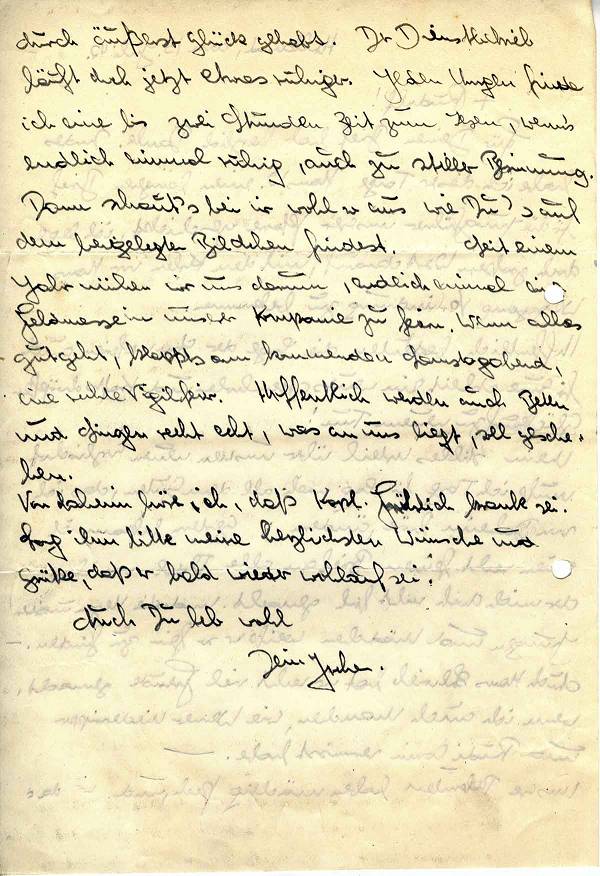 durch äußerst Glück gehabt. Der Dienstbetrieb
läuft doch jetzt etwas ruhiger. Jeden Morgen finde
ich eine bis zwei Stunden Zeit zum Lesen, wenn's
endlich einmal ruhig, auch zu stiller Besinnung.
Dann schaut's bei mir wohl so aus wie Du's auf
dem beigelegten Bildchen findest. Seit einem
Jahr mühen wir uns darum, endlich einmal eine
Feldmesse in unserer Kompanie zu feiern. Wenn alles
gutgeht, klappts am kommenden Samstagabend,
eine rechte Vigilfeier. Hoffentlich werden auch Beten
und Singen recht echt, was an uns liegt, soll gesche-
hen.
Von daheim höre ich, daß Kapl. Fröhlich krank sei.
Sag ihm bitte meine herzlichsten Wünsche und
Grüße, daß er bald wieder wohlauf sei!
Auch Du leb wohl
Dein